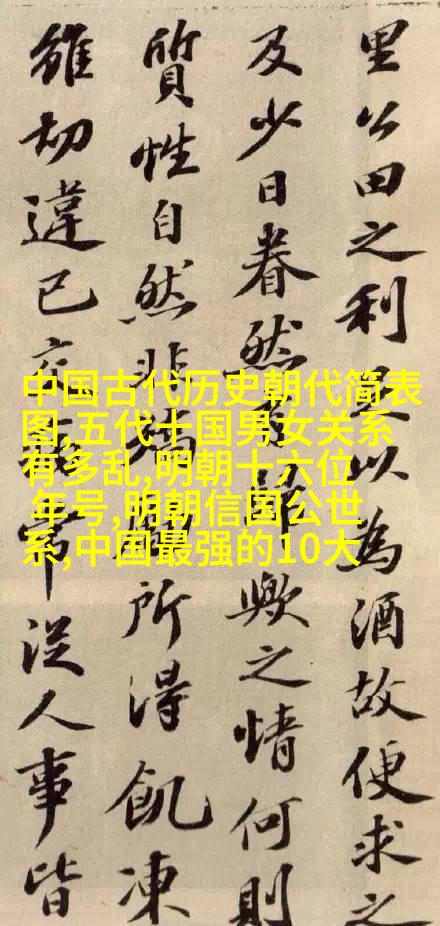 里公田之利以為酒故便求之
及少日眷然歟之情何則
質性自然非所得飢凍
雖切違己從人事皆
中国古代历史朝代简表
图,五代十国男女关系
有多乱,明朝十六位
年号,明朝信国公世
系,中国最强的10大